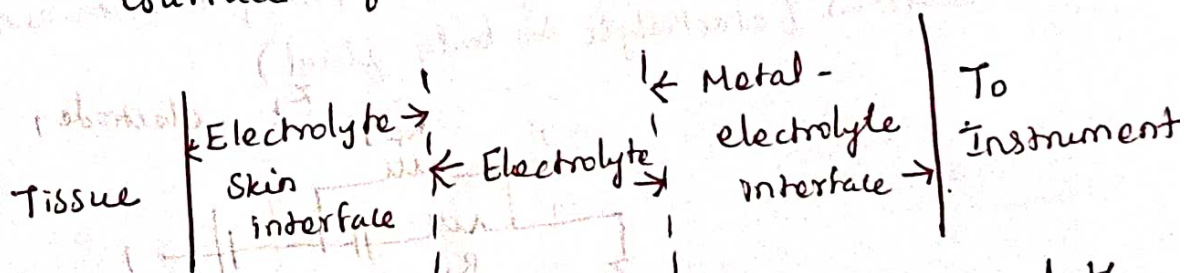 Tissue
Electrolyte
Skin
interface
Electrolyte
Metal -
electrolyte
interface
To
Instrument